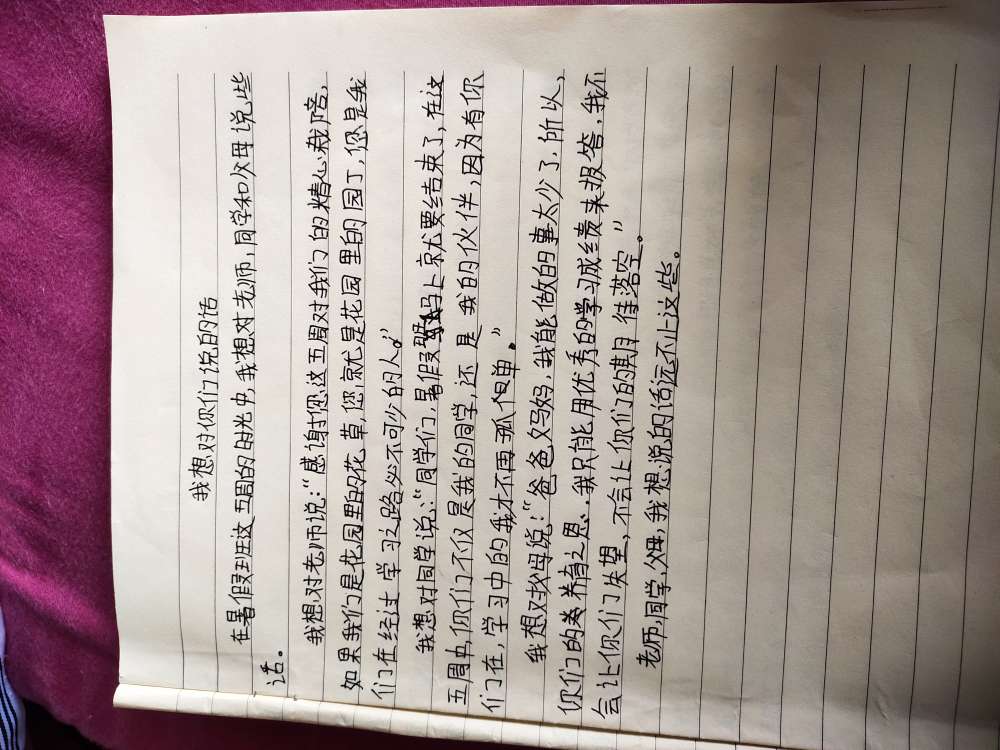 我想对你们说的话
在暑假班这五周的时光中,我想对老师,同学和父母说些
话。
我想对老师说:“感谢您这五周对我们的精心栽陪,
如果我们是花园里的花草,您就是花园里的园丁,您是我
们在经过学习之路必不可少的人。”
我想对同学说:“同学们,暑假马上就要结束了,在这
五周中,你们不仅是我的同学,还是我的伙伴,因为有你
们在,学习中的我才不再孤单。”
我想对父母说:“爸爸妈妈,我能做的事太少了,所以,
你们的养育之恩,我只能用优秀的学习成绩来报答,我不
会让你们失望,不会让你们的期待落空”
老师,同学,父母,我想说的话远不止这些。